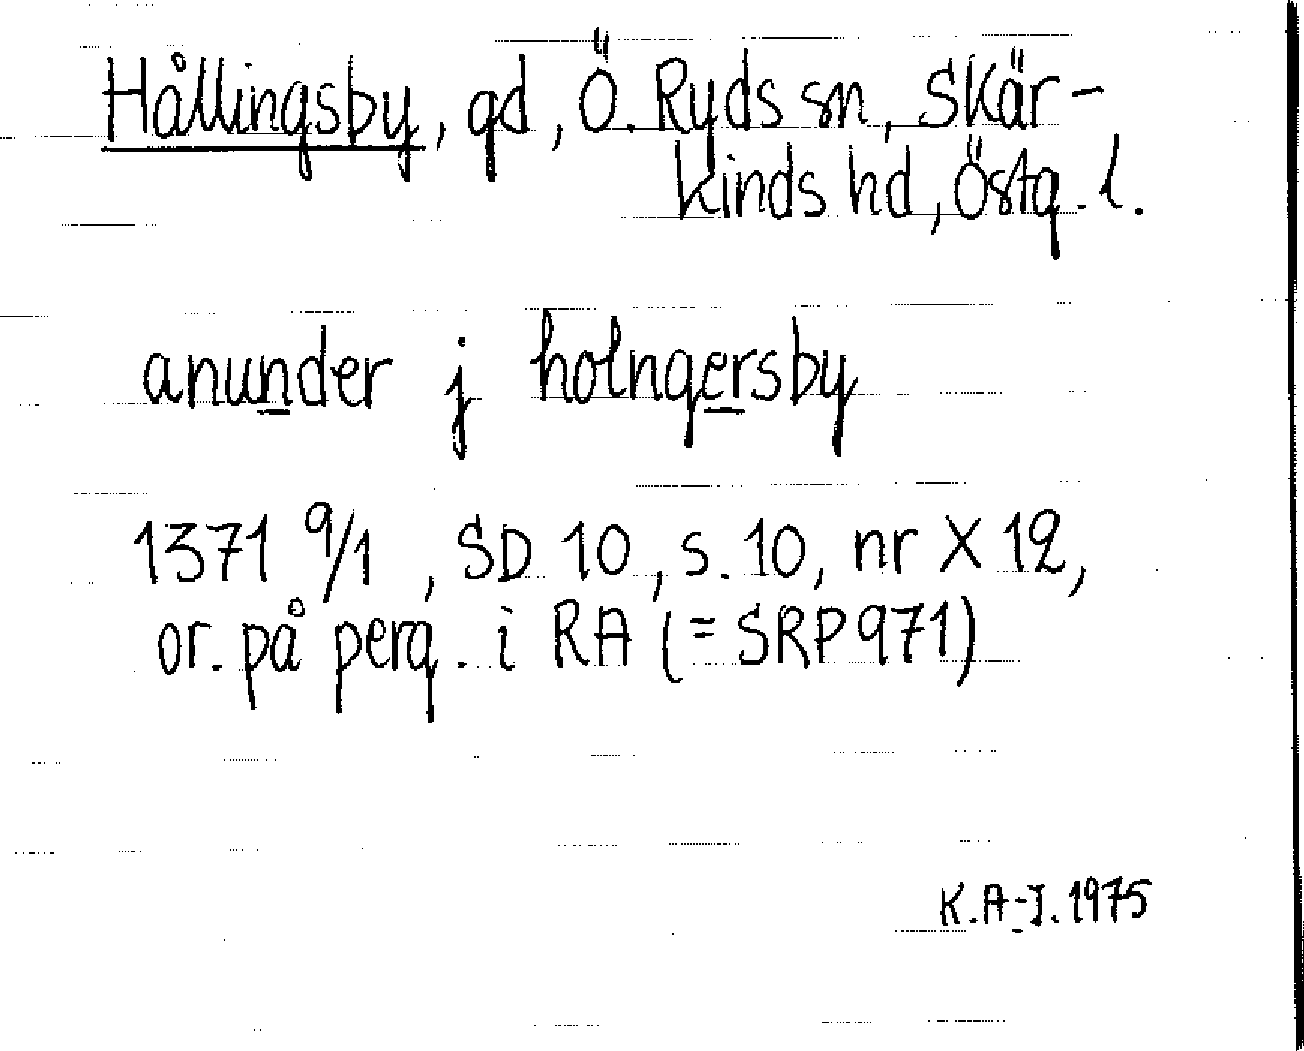 Hållingsby, gd, Ö. Ryds sn, Skär-
kinds hd, Östg. l.
anunder j holngersby
1371 9/1, SD 10, s. 10, nr X 12,
or. på perg. i RA (= SRP 971)
K.A-J. 1975